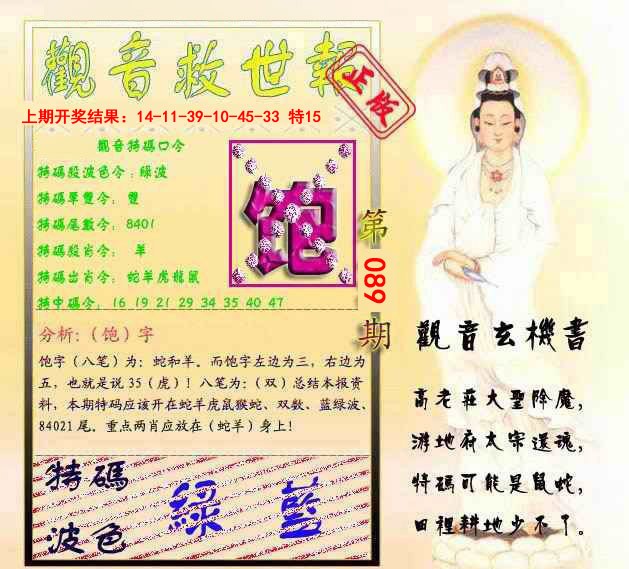 觀音救世報
正版
上期开奖结果：14-11-39-10-45-33 特15
觀音特碼口令
特碼段波色令：綠波
特碼單雙令： 雙
特碼尾數令：8401
特碼段肖令： 羊
特碼出肖令： 蛇羊虎龍鼠
特中碼令： 16 19 21 29 34 35 40 47
饱
第
089
期
分析：（饱）字
饱字（八笔）为：蛇和羊。而饱字左边为三，右边为
五，也就是说 35（虎）！八笔为：（双）总结本报资
料，本期特码应该开在蛇羊虎鼠猴蛇、双数、蓝绿波、
84021 尾。重点两肖应放在（蛇羊）身上！
特碼
波色
綠 藍
觀音玄機書
高老莊大聖降魔，
游地府太宗還魂，
特碼可能是鼠蛇，
田裡耕地少不了。